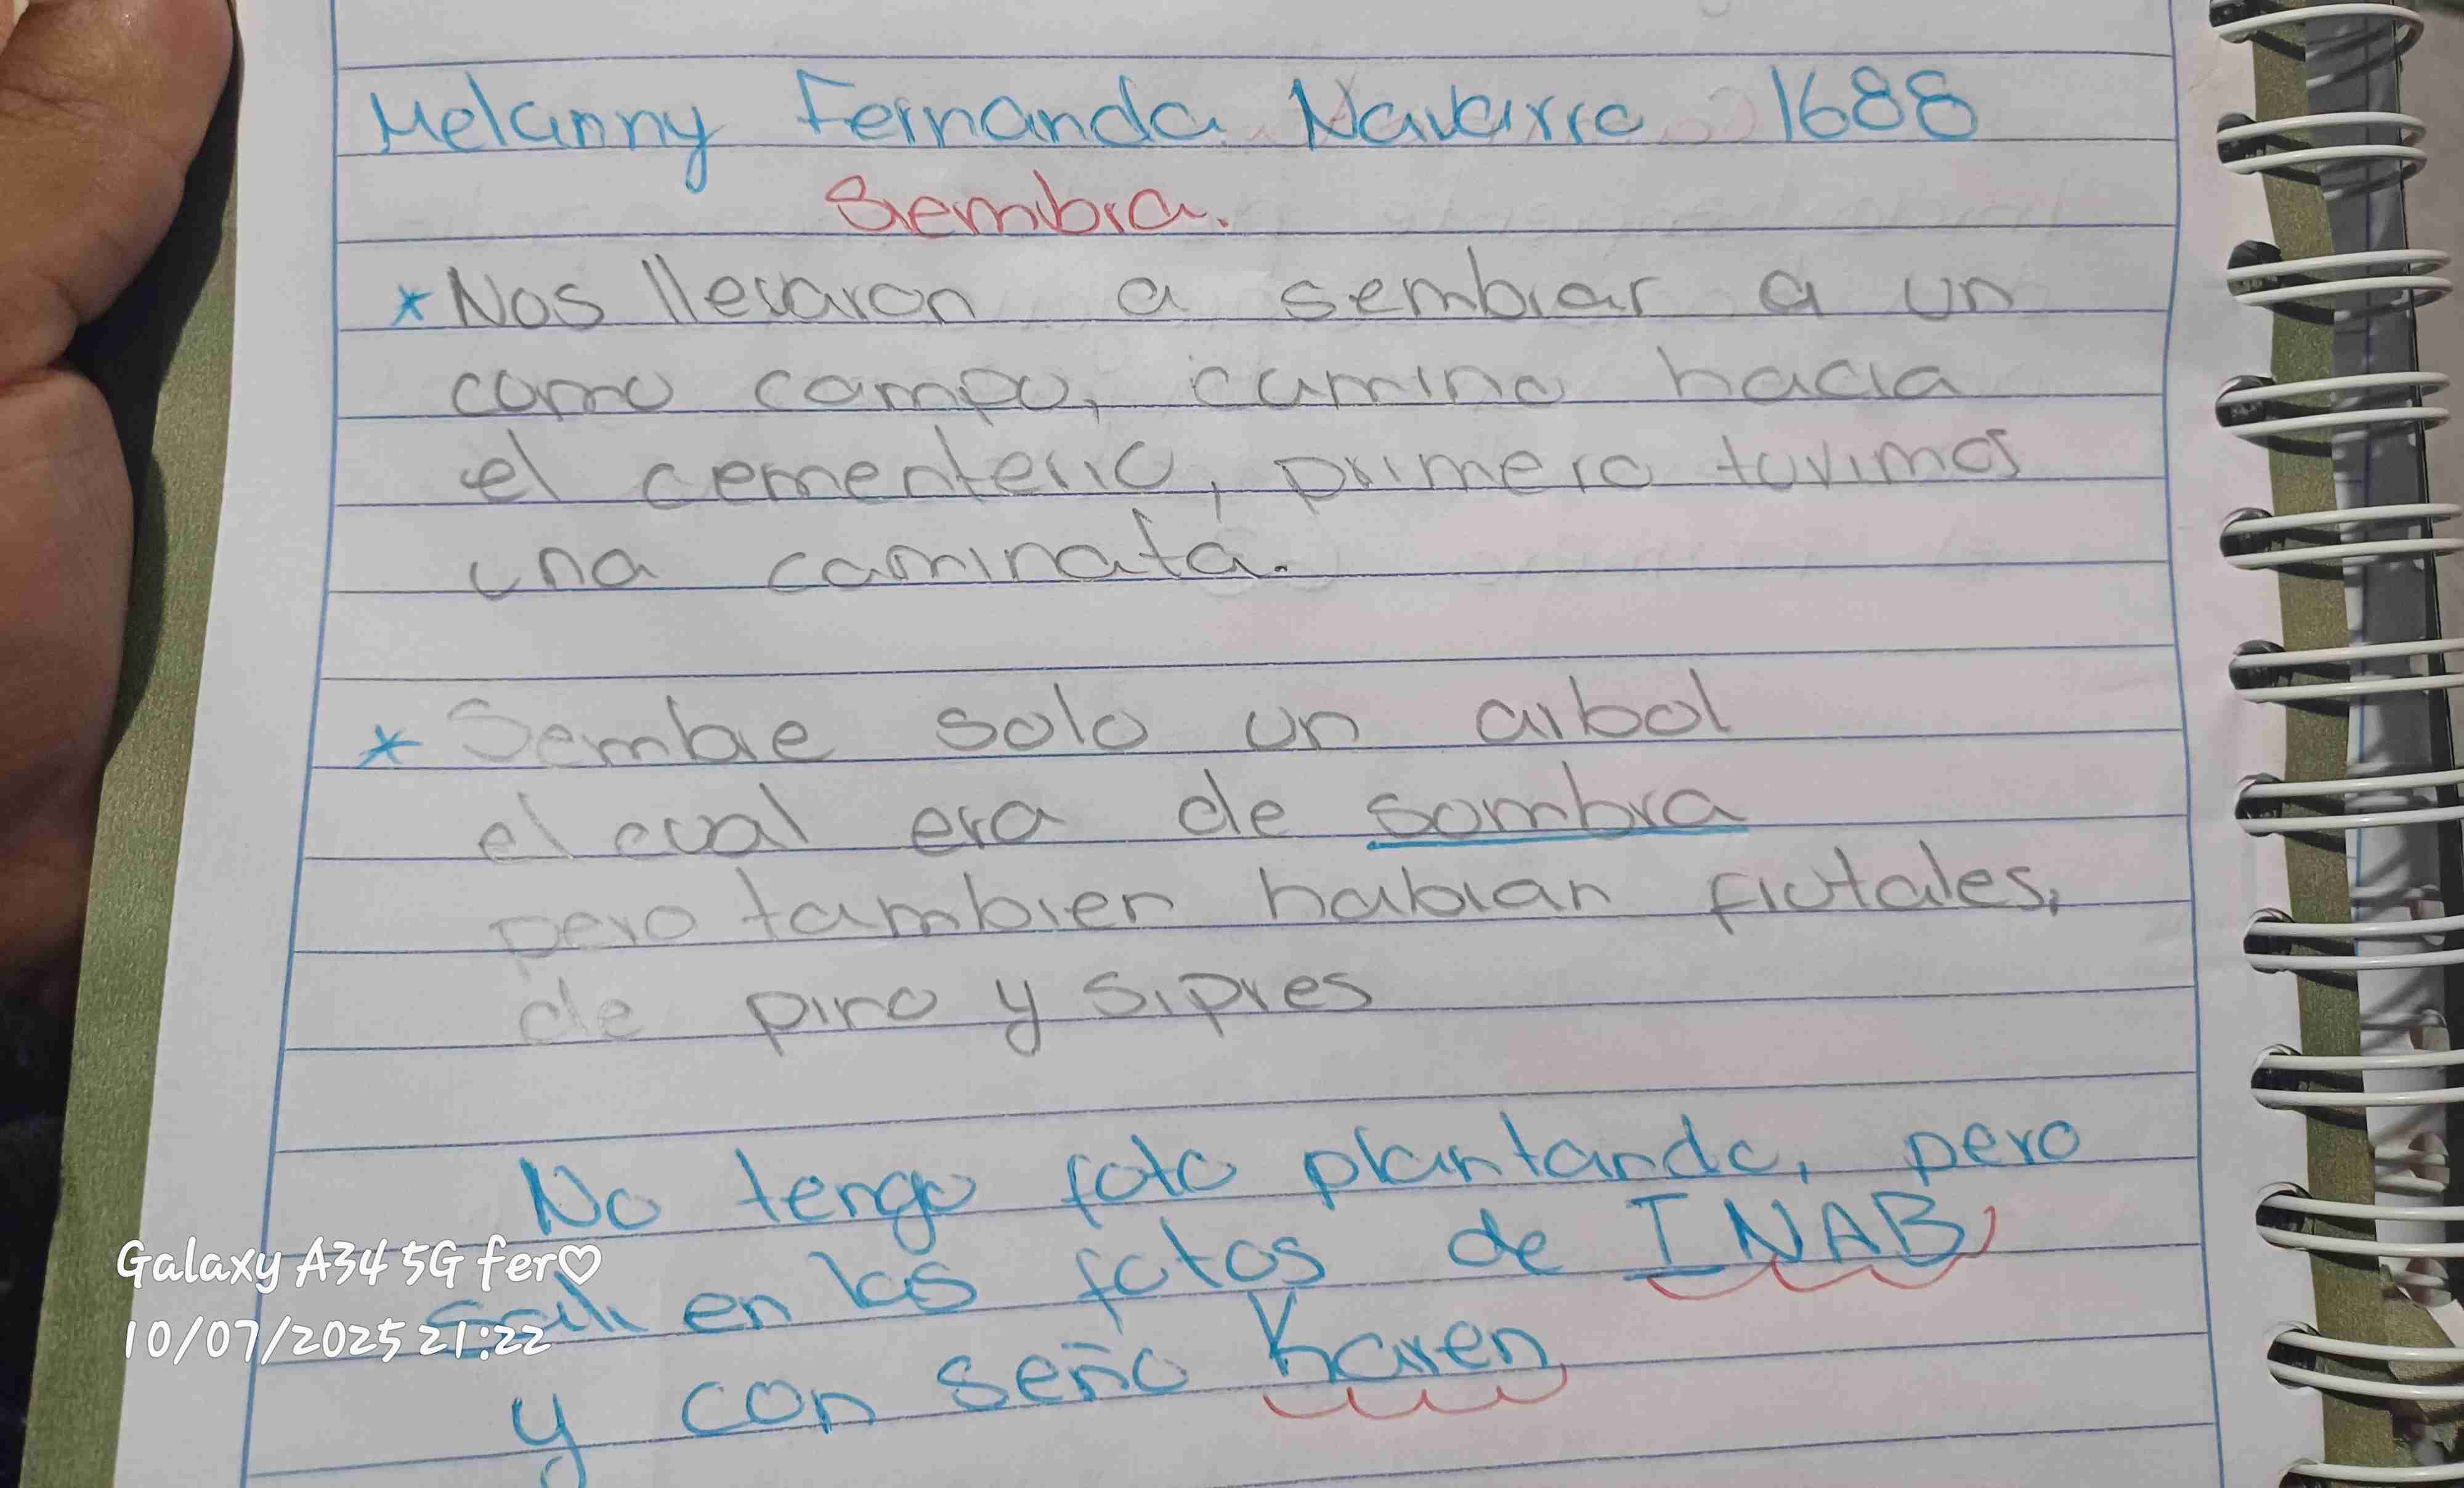 Melanny Fernanda Navarro 1688
Siembra.
* Nos llevaron a sembrar a un
como campo, camino hacia
el cementerio, primero tuvimos
una caminata.
* Sembre solo un arbol
el cual era de sombra
pero tambien habian frutales,
de pino y sipres
No tengo foto plantando, pero
sali en las fotos de INAB
y con seño Karen
Galaxy A34 5G fer♡
10/07/2025 21:22